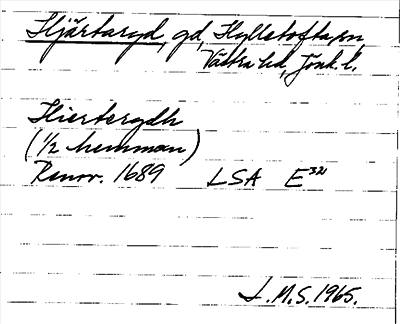 Hjärtaryd, gd, Hylletofta sn
Västra hd, Jönk. l.
Hierterydh
(1/2 hemman)
Renov. 1689 LSA E321
L.M.S. 1965.